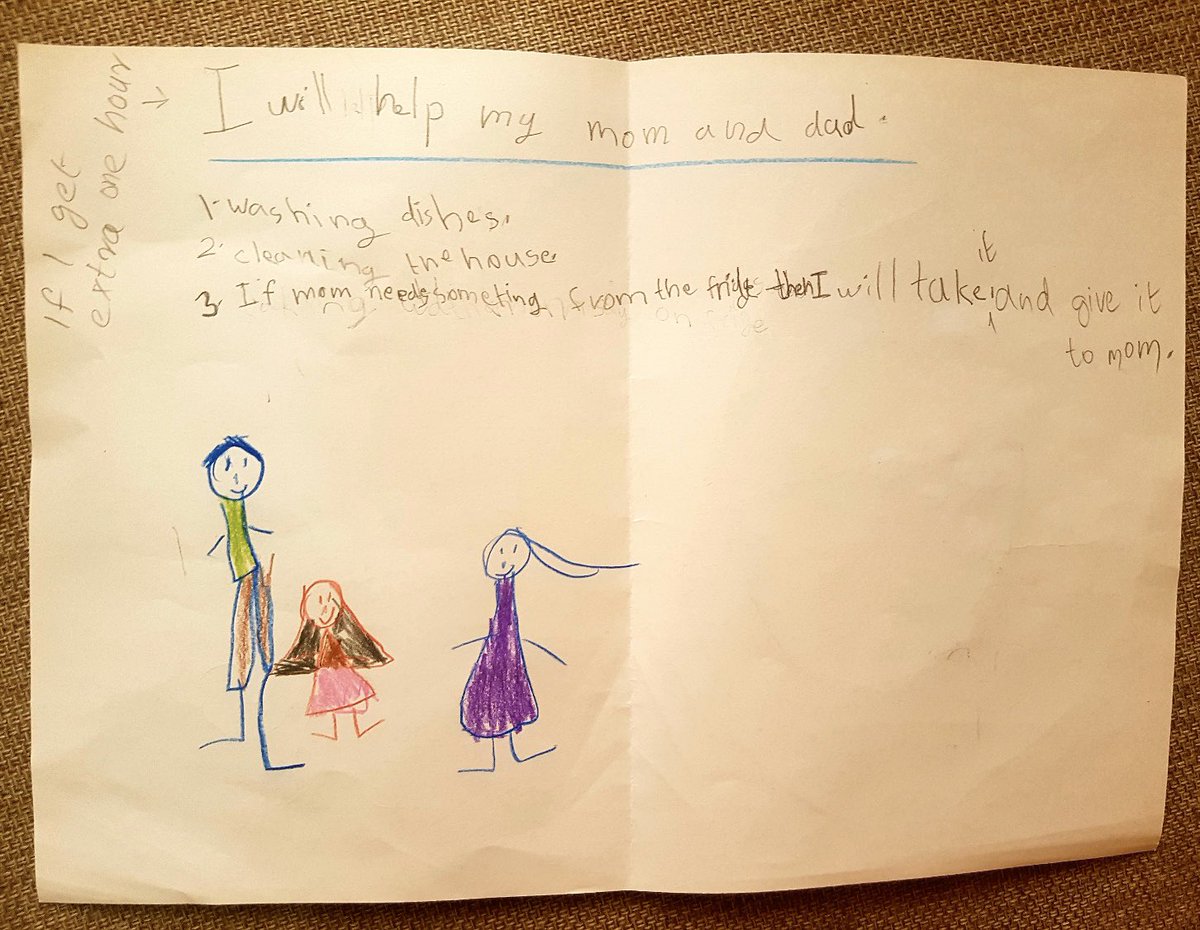 If I get
extra one hour
I will help my mom and dad.
1. washing dishes.
2. cleaning the house.
3 If mom needs someting from the fridge then I will take it and give it
to mom.